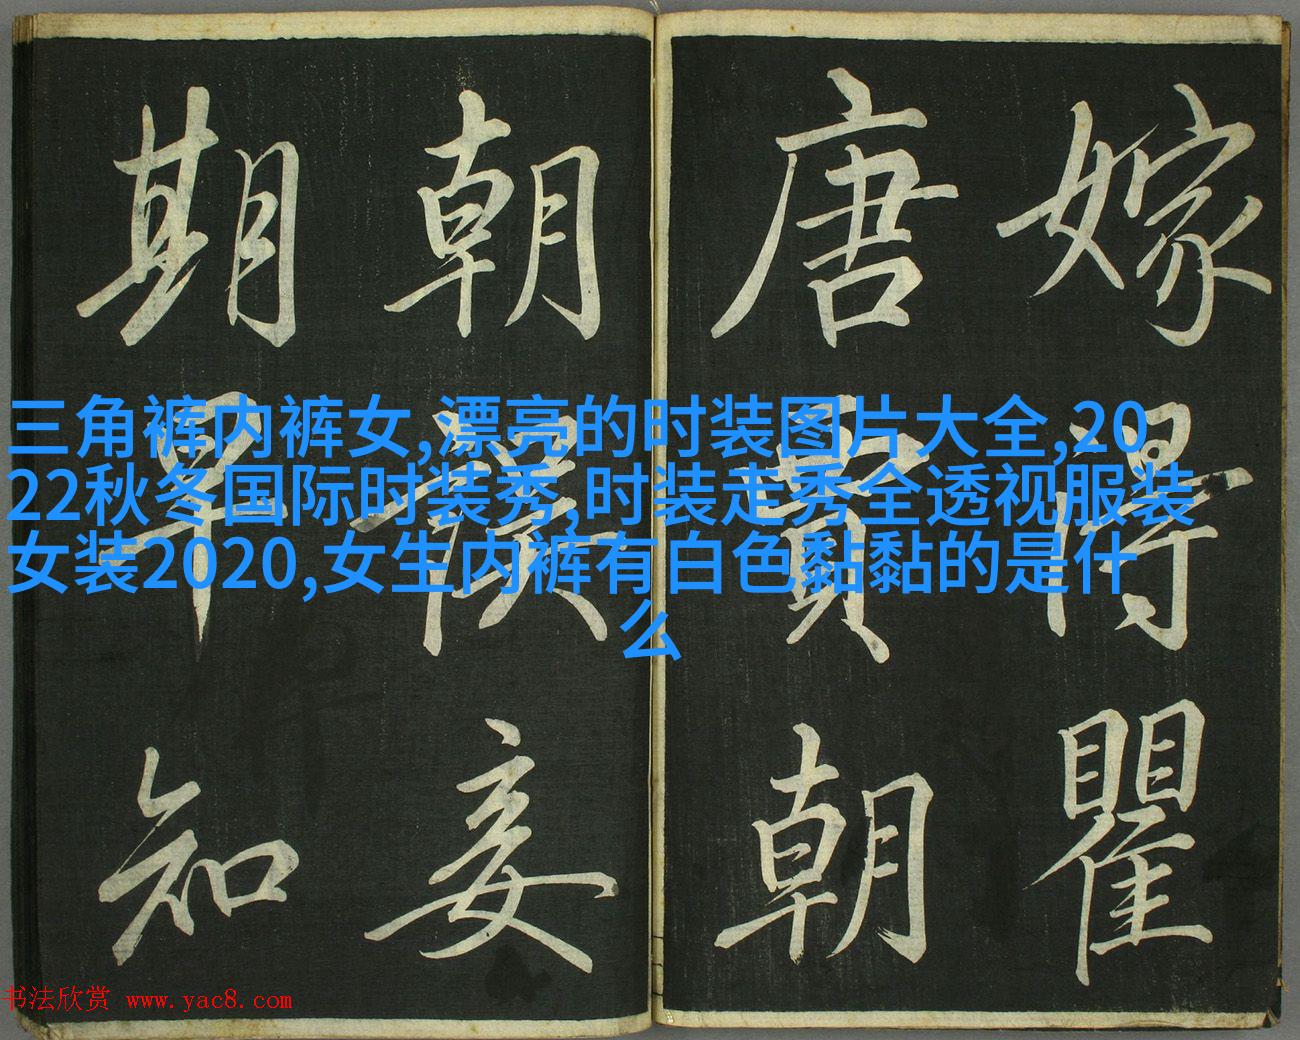 嫁得瞿
唐賈朝
朝誤妾
期早知
三角裤内裤女,漂亮的时装图片大全,20
22秋冬国际时装秀,时装走秀全透视服装
女装2020,女生内裤有白色黏黏的是什
么
书法欣赏 www.yac8.com